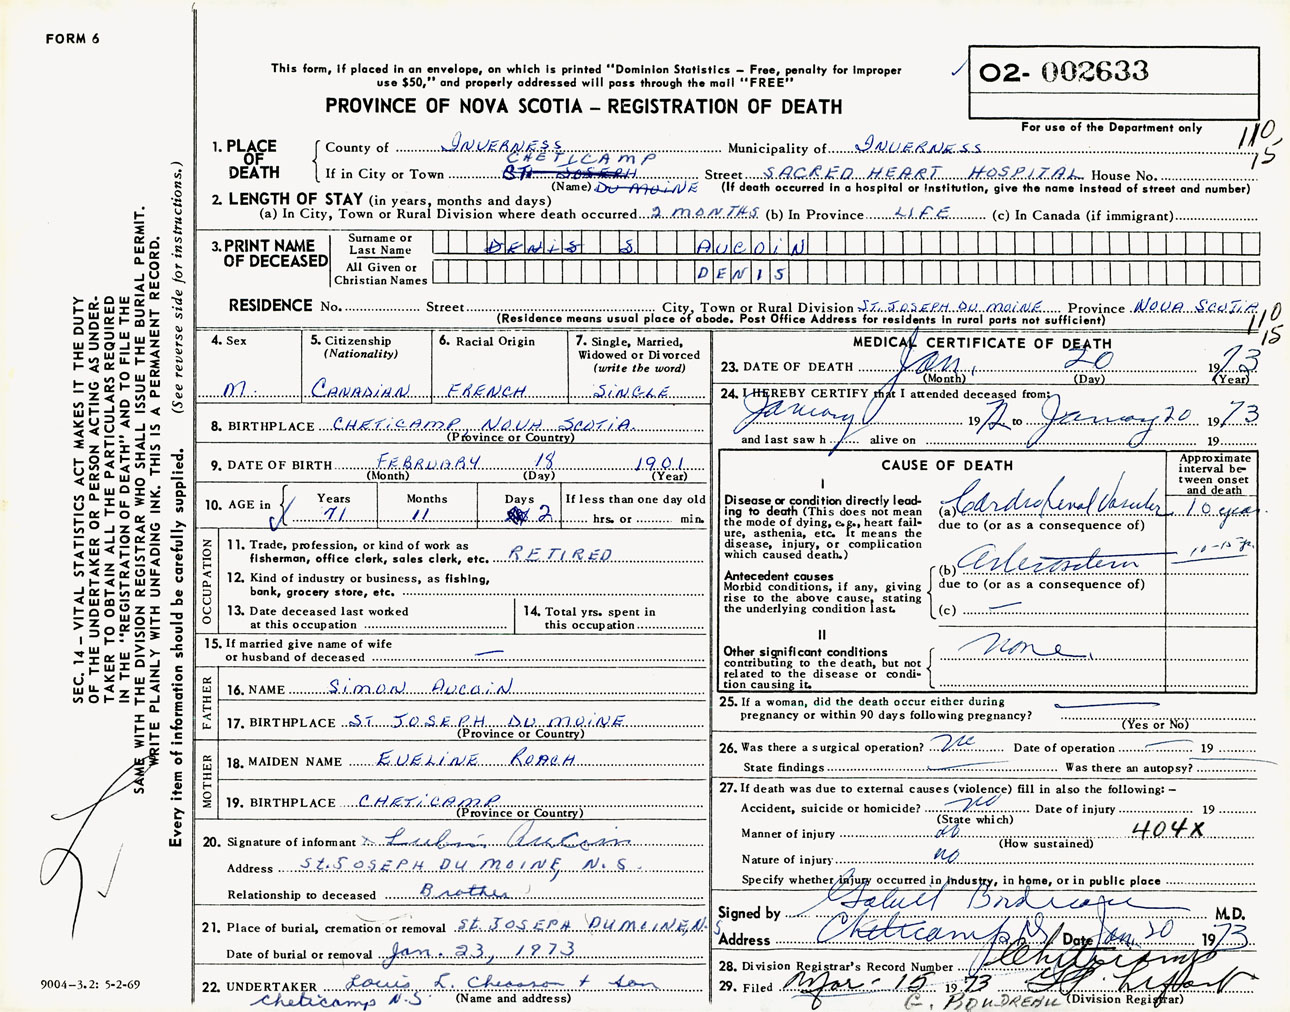 FORM 6
O2- 002633
This form, if placed in an envelope, on which is printed "Dominion Statistics – Free, penalty for improper
use $50," and properly addressed will pass through the mail "FREE"
PROVINCE OF NOVA SCOTIA – REGISTRATION OF DEATH
For use of the Department only
110
15
1. PLACE OF DEATH
County of INVERNESS Municipality of INVERNESS
CHETICAMP
If in City or Town ST. JOSEPH Street SACRED HEART HOSPITAL House No.
(Name) DU MOINE (If death occurred in a hospital or institution, give the name instead of street and number)
2. LENGTH OF STAY (in years, months and days)
(a) In City, Town or Rural Division where death occurred 2 MONTHS (b) In Province LIFE (c) In Canada (if immigrant)
3. PRINT NAME OF DECEASED
Surname or Last Name DENIS S AUCOIN
All Given or Christian Names DENIS
RESIDENCE No. Street City, Town or Rural Division ST. JOSEPH DU MOINE Province NOVA SCOTIA
(Residence means usual place of abode. Post Office Address for residents in rural parts not sufficient)
110
15
4. Sex M.
5. Citizenship (Nationality) CANADIAN
6. Racial Origin FRENCH
7. Single, Married, Widowed or Divorced (write the word) SINGLE
8. BIRTHPLACE CHETICAMP, NOVA SCOTIA.
(Province or Country)
9. DATE OF BIRTH FEBRUARY 18 1901
(Month) (Day) (Year)
10. AGE in Years 71 Months 11 Days 2 If less than one day old hrs. or min.
OCCUPATION
11. Trade, profession, or kind of work as
fisherman, office clerk, sales clerk, etc. RETIRED
12. Kind of industry or business, as fishing,
bank, grocery store, etc.
13. Date deceased last worked
at this occupation
14. Total yrs. spent in
this occupation
15. If married give name of wife
or husband of deceased —
FATHER
16. NAME SIMON AUCOIN
17. BIRTHPLACE ST JOSEPH DU MOINE
(Province or Country)
MOTHER
18. MAIDEN NAME EVELINE ROACH
19. BIRTHPLACE CHETICAMP
(Province or Country)
20. Signature of informant x Lubin Aucoin
Address ST. JOSEPH DU MOINE, N. S.
Relationship to deceased Brother
21. Place of burial, cremation or removal ST. JOSEPH DU MOINE, N.S
Date of burial or removal Jan. 23, 1973
22. UNDERTAKER Louis L. Chiasson + son
Cheticamp N.S. (Name and address)
MEDICAL CERTIFICATE OF DEATH
23. DATE OF DEATH Jan. 20 1973
(Month) (Day) (Year)
24. I HEREBY CERTIFY that I attended deceased from:
January 1972 to January 20 1973
and last saw h alive on 19
CAUSE OF DEATH
Approximate interval between onset and death
I
Disease or condition directly lead-
ing to death (This does not mean
the mode of dying, e.g., heart fail-
ure, asthenia, etc. It means the
disease, injury, or complication
which caused death.)
(a) Cardio Renal Vascular 10 years
due to (or as a consequence of)
Antecedent causes
Morbid conditions, if any, giving
rise to the above cause, stating
the underlying condition last.
(b) 10-15 yr.
due to (or as a consequence of)
(c) —
II
Other significant conditions
contributing to the death, but not
related to the disease or condi-
tion causing it.
none.
25. If a woman, did the death occur either during
pregnancy or within 90 days following pregnancy? —
(Yes or No)
26. Was there a surgical operation? no Date of operation — 19
State findings — Was there an autopsy?
27. If death was due to external causes (violence) fill in also the following: –
Accident, suicide or homicide? no Date of injury 19
(State which)
Manner of injury no 404X
(How sustained)
Nature of injury no
Specify whether injury occurred in industry, in home, or in public place
Signed by Gabriel Boudreau M.D.
Address Cheticamp NS Date Jan. 20 1973
28. Division Registrar's Record Number Cheticamp
29. Filed Mar - 15 1973
G. BOUDREAU (Division Registrar)
SEC. 14 – VITAL STATISTICS ACT MAKES IT THE DUTY
OF THE UNDERTAKER OR PERSON ACTING AS UNDER-
TAKER TO OBTAIN ALL THE PARTICULARS REQUIRED
IN THE "REGISTRATION OF DEATH" AND TO FILE THE
SAME WITH THE DIVISION REGISTRAR WHO SHALL ISSUE THE BURIAL PERMIT.
WRITE PLAINLY WITH UNFADING INK. THIS IS A PERMANENT RECORD.
Every item of information should be carefully supplied. (See reverse side for instructions.)
9004–3.2: 5-2-69